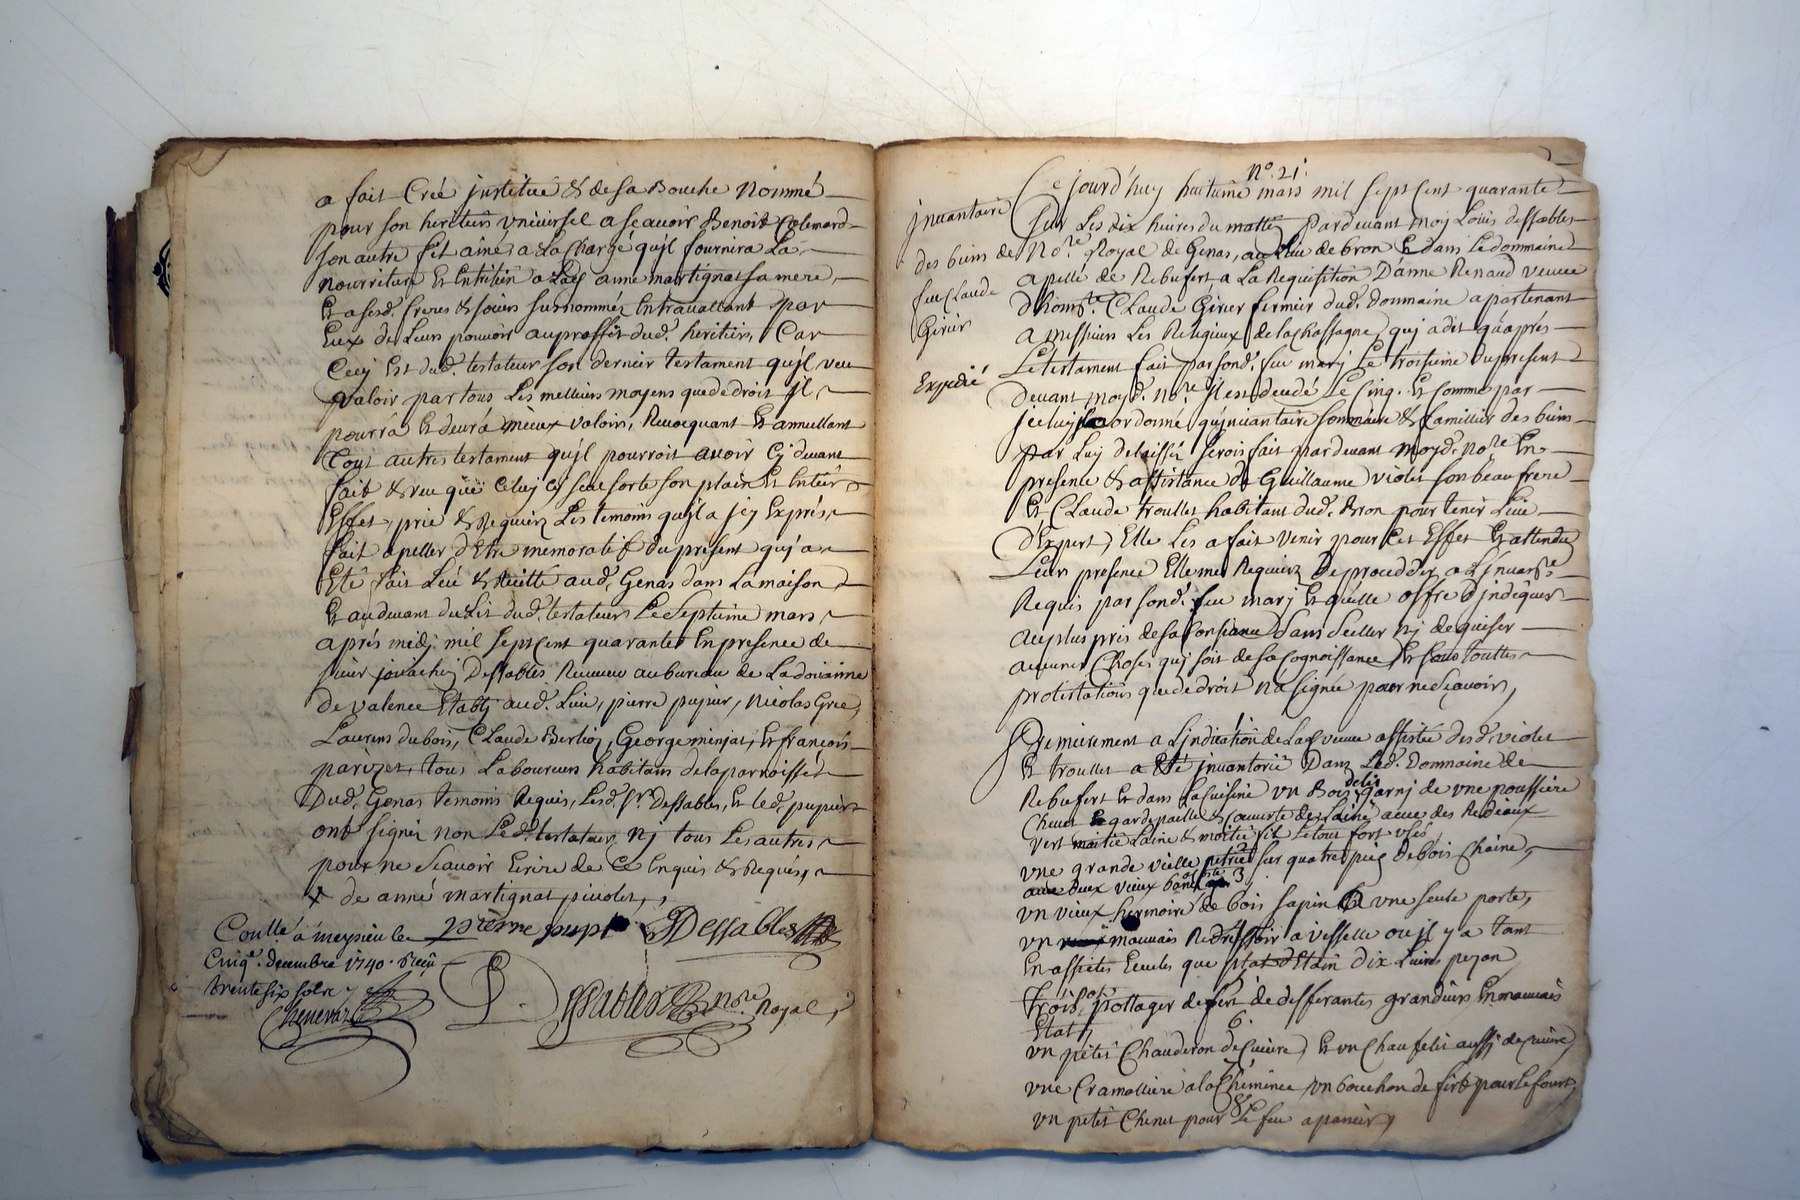 a fait Créé jnstitué & de sa Bouche Nommé
pour son heretier vniuersel a scauoir Benoit Colemard
son autre fil aine, a La Charge qu'jl fournira La
nourriture Et Entretien a Lad anne martignat sa mere
Et a sesd. freres & soeurs surnommés En trauaillant par
Eux de Leur pouuoir au proffit dud. heritier, Car
Cecy Est dud. testateur son dernier testament qu'jl veu
valoir par tous Les melleurs moyens que de droit jl
pourrá Et deurá mieux valoir, Reuocquant Et annullant
tout autres testament qu'jl pourroit auoir Cy deuant
fait & veu que Celuy Cy seul sorte son plain Et Entier
Effet, prie & Requiert Les temoins qu'jl a jcy Exprés
fait apeller d'Etre memoratif du présent quj a
Eté fait Leu & Recitté aud. Genas dans La maison
Et au deuant du Lit dud. testateur Le Septieme mars
aprés midj mil sept Cent quarante En presence de
sieur joachin Dessables Receueur au bureau de La douanne
de valence Etablj aud. Lieu, pierre pupier, Nicolas Gree,
Laurens dubois, Claude Berlioz, George minjat, Et françois
tous Laboureurs habitans de la parroisse
Dud. Genas temoins Requis, Lesd. Sr. Dessables, Et Led. pupier
ont signés non Led. testateur Nj tous Les autres
pour ne Scauoir Ecrire de Ce Enquis & Requis,
+ de anne martignat
pierre pupi DDessables
Conllé á meysieu le
Cinqe. decembre 1740. Reçu
trente six sols
Dessables nore. Royal,
No. 21.
jnuantaire
des biens de
feu Claude
Girier
Expedié
Ce jourd'huy huitieme mars mil sept Cent quarante
Sur Les dix heures du mattin pardeuant moy Louis dessables
Nore. Royal de Genas, au Lieu de bron Et dans Le dommaine
apellé de Rebufert, a La Requisition D'anne Renaud veuue
d'homte. Claude Girier fermier dud. dommaine apartenant
a messieurs Les Religieux de la Chassagne, quj a dit qu'aprés
Le testament fait par sond. feu marj Le troisieme du present
Deuant moyd. Nore. jl est decedé Le Cinq. Et Comme par
jceluy jl a ordonné qu'jnuantaire sommaire & famillier des biens
par Luy delaissés serois fait par deuant moyd. nore. En
presence & assistance de Guillaume violet son beau frere
Et Claude troullet habitant dud. Bron pour tenir Lieu
d'Expert, Elle Les a fait venir pour Cet Effet Et attendu
Leur presence Elle me Requiert De procedder a L'jnuanre.
Requis par sond. feu marj Et quelle offre d'jndiquer
au plus prés de sa Consiance sans Seeller Nj deguiser
aucunes Choses quj soit de sa Cognoissance Et sous touttes
protestations que de droit Na signée pour ne Scauoir,
Premierement a L'jndication de Lad veuue assistée desd. violet
Et troullet a Eté jnuantorié Dans Led. Dommaine de
Rebufert Et dans La Cuisine vn Bois delit garnj de vne poussiere
Cheuet Et garde paille & Couuerte de Laine auec des Redeaux
vert moitié Laine & moitié fil Le tout fort vsés
vne grande vielle petriere sur quatre pieds de bois Chaine,
auec deux vieux bancs 3
vn vieux hermoire de bois sapin Et vne seule porte,
vn mauuais Redressoir a vesselle ou jl y a tant
En assietes Ecuelles que plat d'Etain dix Liures pezan
trois pottager de fert de differantes grandeurs En mauuais
Etat,
6.
vn petit Chauderon de Cuiure, Et vn Chaufelit aussj de Cuiure,
7
vne Cramalliere a la Cheminée vn bouchon de fert pour Le fourt,
8
vn petit Chenet pour Le feu